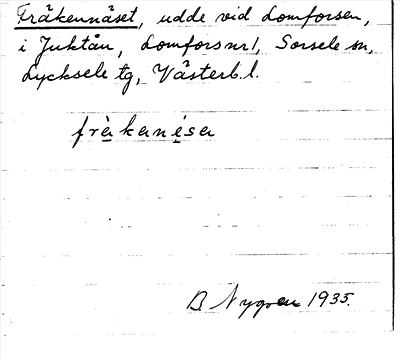 Fräkennäset, udde vid Lomforsen,
i Juktån, Lomfors nr 1, Sorsele sn,
Lycksele tg, Västerb. l.
frὲkenésa
B Nygren 1935.